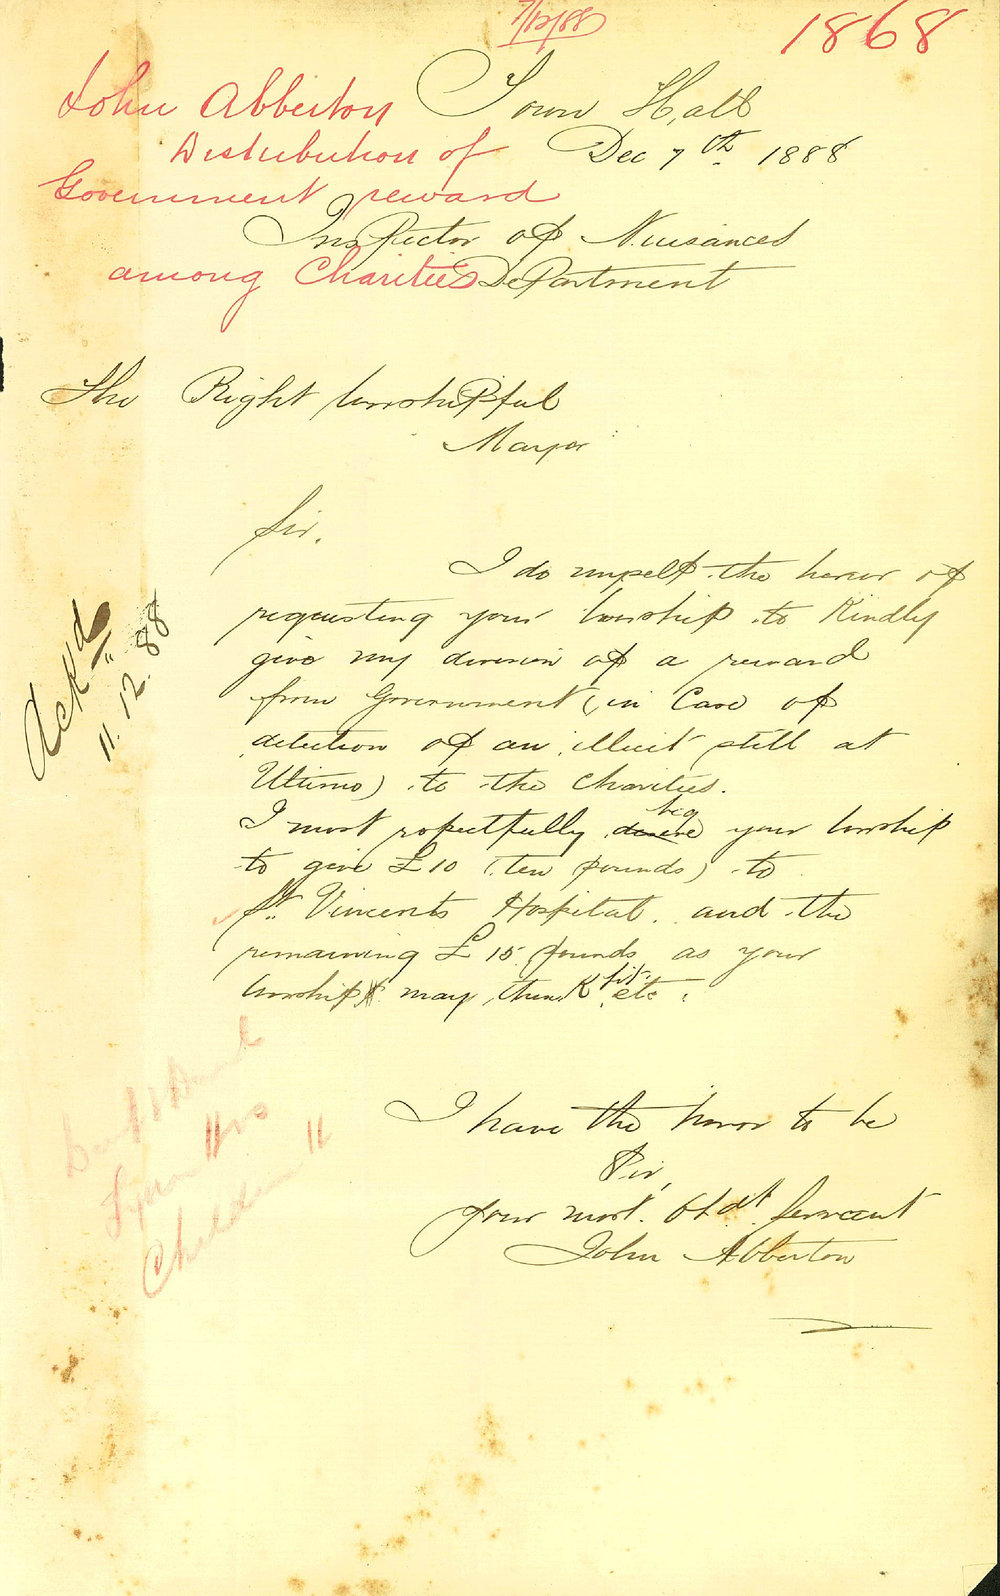 7/12/88
1868
John Abberton
Distribution of
Government reward
among Charities
Town Hall
Dec 7th 1888
Inspector of Nuisances
Department
The Right Worshipful
Mayor
Sir,
I do myself the honor of
requesting your worship to Kindly
give my division of a reward
from Government (in Case of
detection of an illicit still at
Ultimo) to the Charities.
I most respectfully desire beg your worship
to give £10 (ten pounds) to
St. Vincents Hospital. and the
remaining £15 pounds as your
worship may think fit etc.
Ackd
11.12.88
Children 11
I have the honor to be
Sir,
Your most. Obdt. Servant
John Abberton